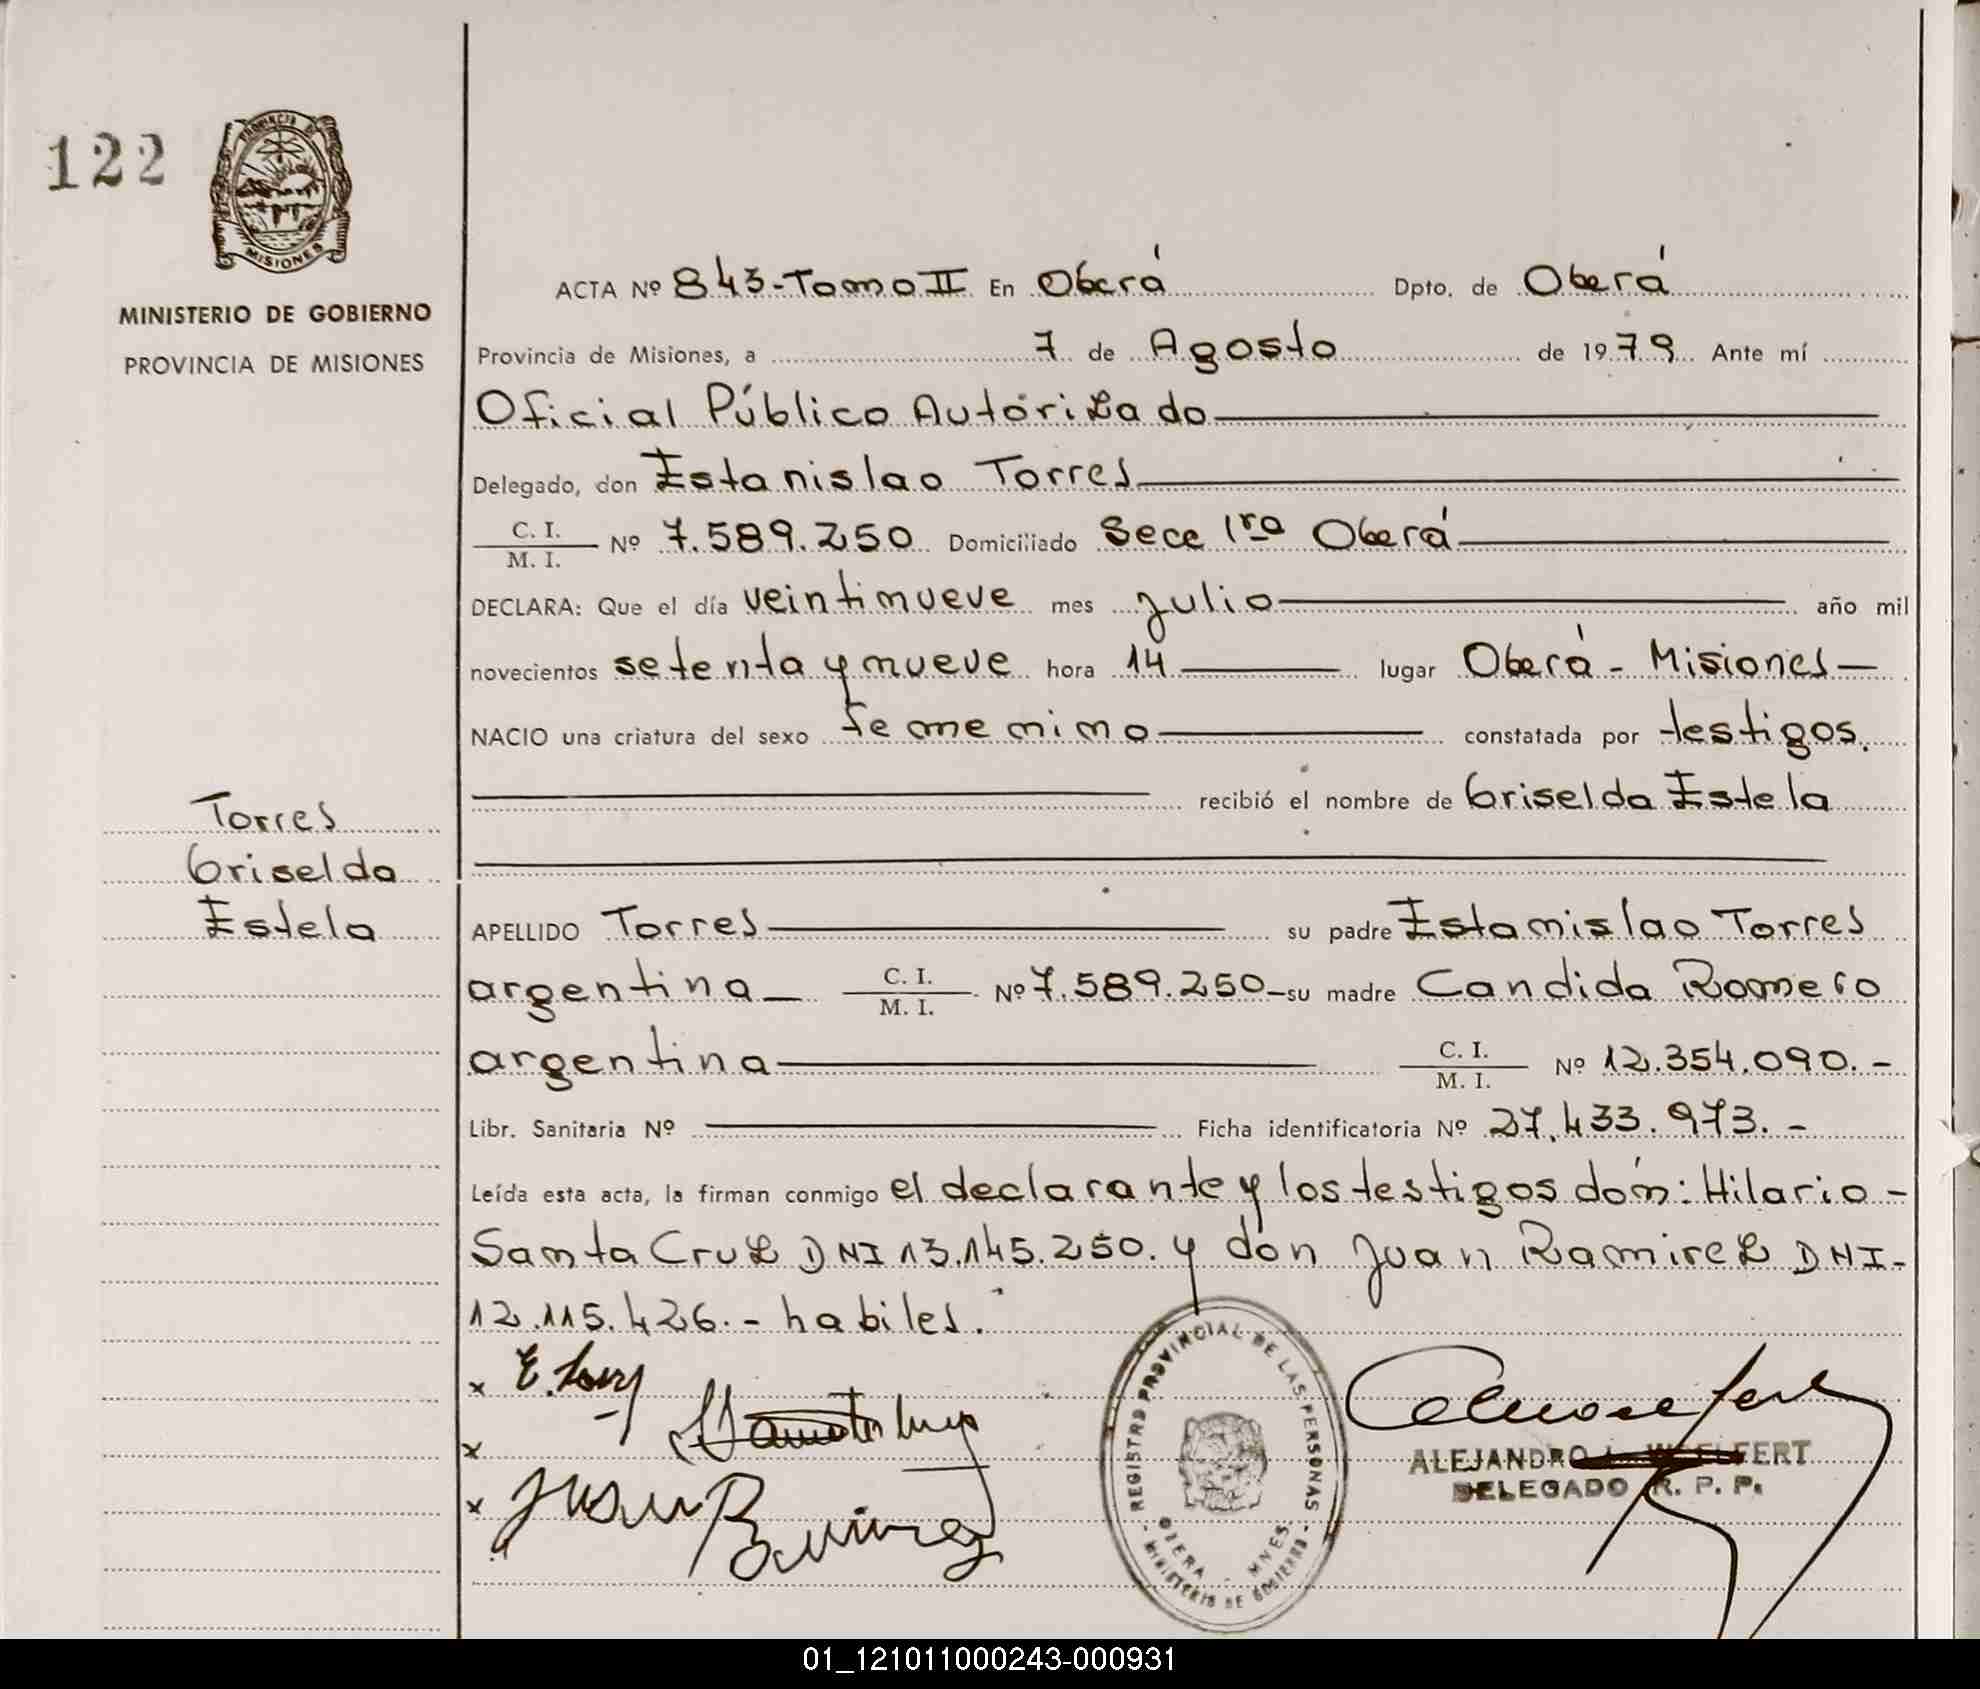 122
PROVINCIA DE
MISIONES
MINISTERIO DE GOBIERNO
PROVINCIA DE MISIONES
ACTA Nº 843-Tomo II En Oberá Dpto. de Oberá
Provincia de Misiones, a 7 de Agosto de 1979 Ante mí
Oficial Público Autórizado
Delegado, don Estanislao Torres
C. I.
M. I. Nº 7.589.250 Domiciliado Secc 1ra Oberá
DECLARA: Que el día veintinueve mes julio año mil
novecientos setenta y nueve hora 14 lugar Oberá - Misiones
NACIO una criatura del sexo femenino constatada por testigos.
recibió el nombre de Griselda Estela
Torres
Griselda
Estela
APELLIDO Torres su padre Estanislao Torres
argentina C. I.
M. I. Nº 7.589.250 su madre Candida Romero
argentina C. I.
M. I. Nº 12.354.090.-
Libr. Sanitaria Nº Ficha identificatoria Nº 27.433.973.-
Leída esta acta, la firman conmigo el declarante y los testigos don: Hilario -
Santa Cruz DNI 13.145.250. y don Juan Ramirez DNI-
12.115.426.- habiles.
x
x
x Juan Ramirez
REGISTRO PROVINCIAL DE LAS PERSONAS
OBERA - MNES.
MINISTERIO DE GOBIERNO
ALEJANDRO
DELEGADO R. P. P.
01_121011000243-000931